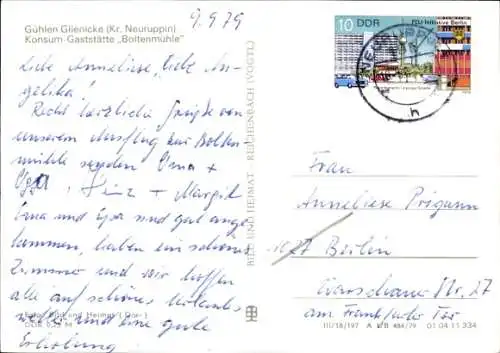 9.9.79
Gühlen Glienicke (Kr. Neuruppin)
Konsum-Gaststätte „Boltenmühle"
Liebe Anneliese, liebe An-
gelika!
Recht herzliche Grüße von
unserem Ausflug zur Bolten
mühle senden Oma +
Opa, Heinz + Margit
Oma und Opa sind gut ange
kommen, haben ein schönes
Zimmer und wir hoffen
alle auf schönes
und eine gute
Erholung.
Bild und Heimat
BILD UND HEIMAT REICHENBACH (VOGTL)
10 DDR FDJ-Initiative Berlin
NEURUPPIN
h
Frau
Anneliese Prigann
1027 Berlin
Warschauer Str. 27
am Frankfurter Tor
III/18/197 A 1/B 484/79 01 04 11 334